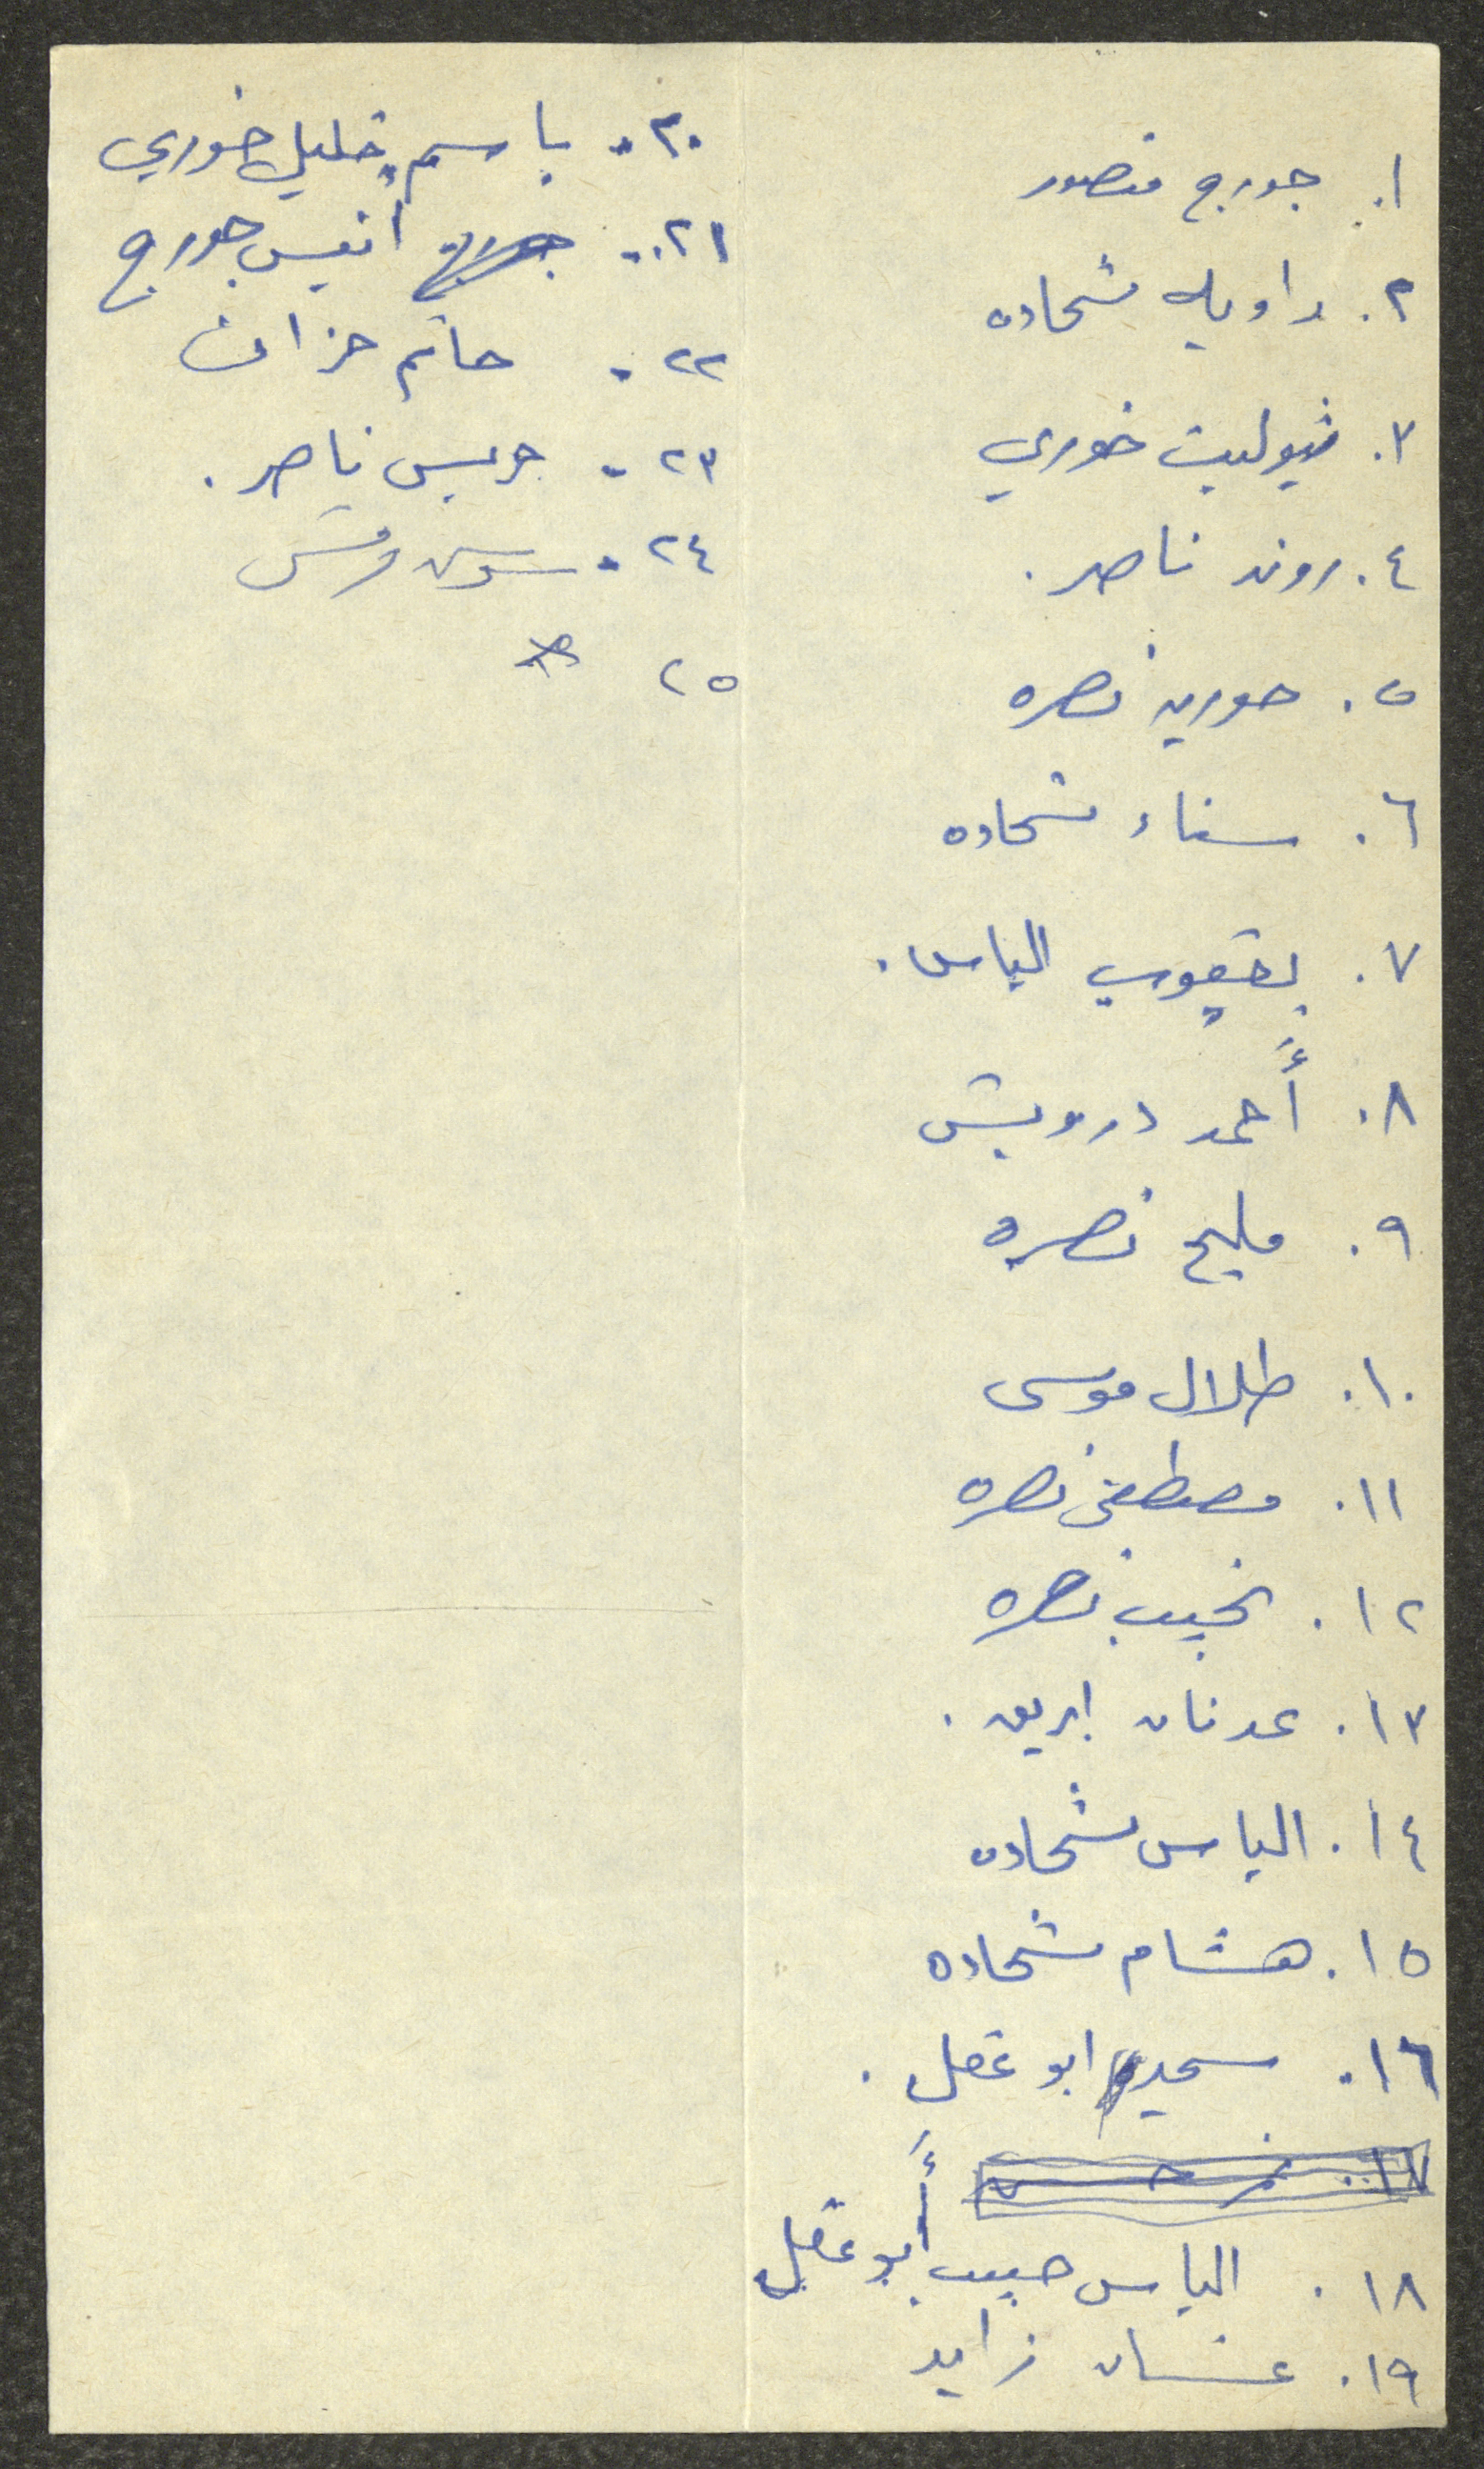 ١. جورج منصور
٢. راويه شحاده
٣. ڤيوليت خوري
٤. روند ناصر.
٥. حورية نصره
٦. سناء شحاده
٧. يعقوب الياس.
٨. أَحمد درويش
٩. مليح نصره
١٠. طلال موسى
١١. مصطفى نصره
١٢. نجيب نصره
١٣. عدنان ابريق.
١٤. الياس شحاده
١٥. هشام شحاده
١٦. سعيد ابو عقل.
١٧. نمر حسن
١٨. الياس حبيب أَبو عقل
١٩. غسان زايد
٢٠. باسم خليل خوري
٢١. انيس جورج
٢٢. حاتم حزان
٢٣. جريس ناصر.
٢٤. سوسن
٢٥ *